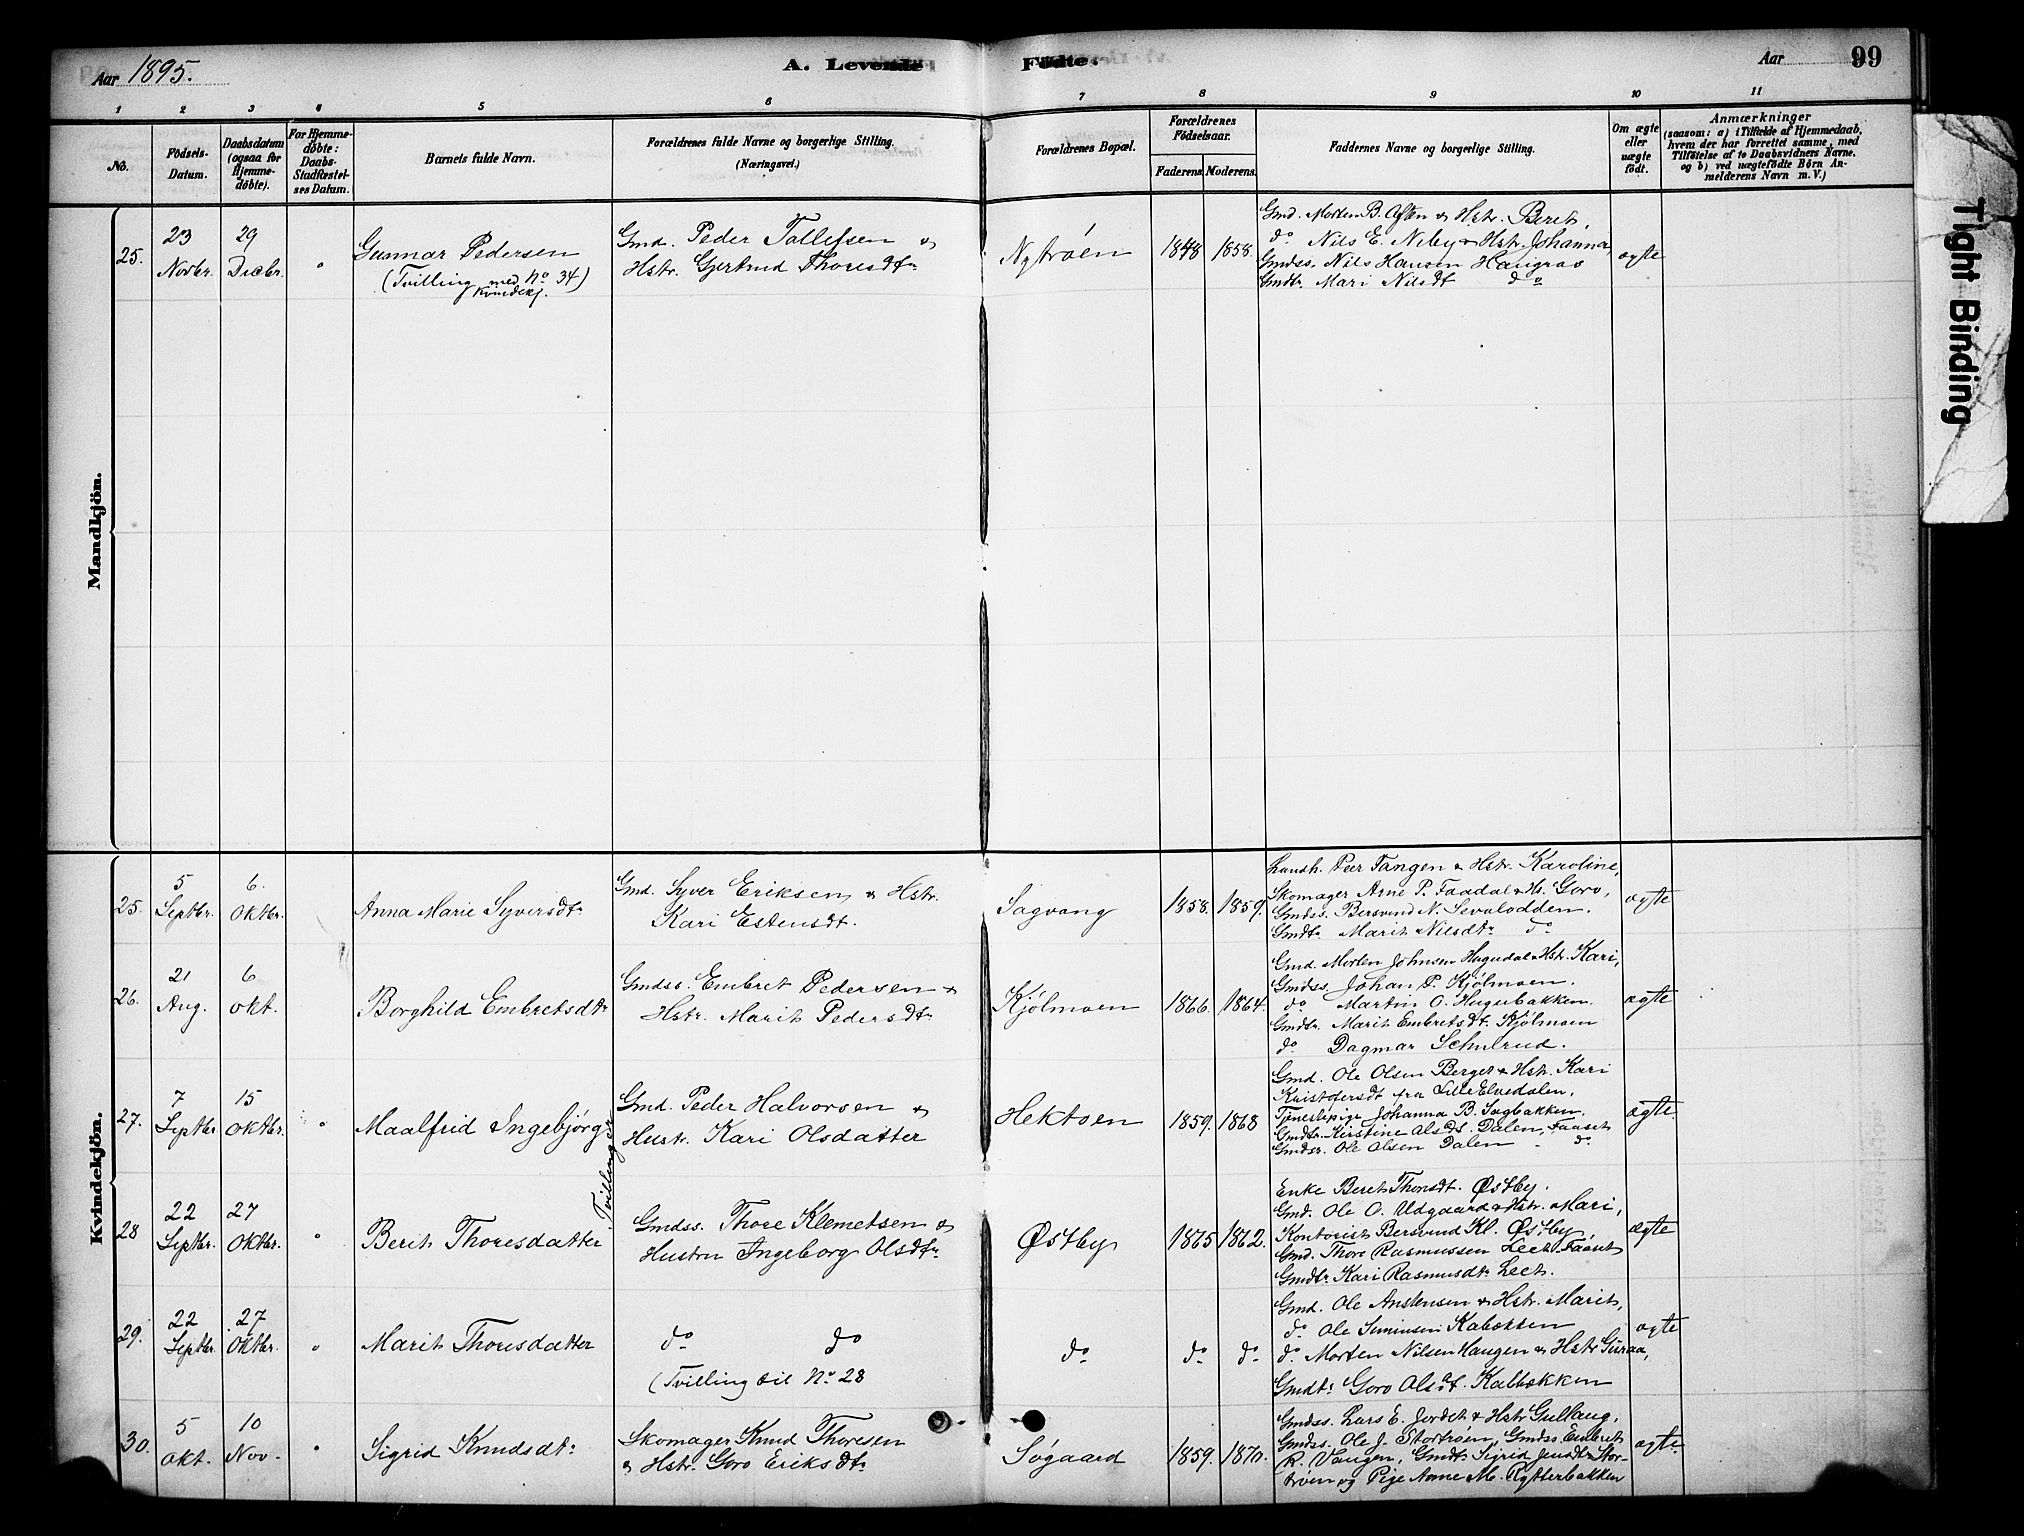 Aar 1895.
A. Levende Födte.
Aar
99
1 2 3 4 5 6 7 8 9 10 11
No.
Födsels-Datum.
Daabsdatum (ogsaa for Hjemme-döbte).
For Hjemme-döbte: Daabs-Stadfæstel-ses Datum.
Barnets fulde Navn.
Forældrenes fulde Navne og borgerlige Stilling.
(Næringsvei.)
Forældrenes Bopæl.
Forældrenes Födselsaar.
Faderens Moderens.
Faddernes Navne og borgerlige Stilling.
Om ægte eller uægte födt.
Anmærkninger
(saasom: a) i Tilfælde af Hjemmedaab,
hvem der har forrettet samme, med
Tilföielse af to Daabsvidners Navne,
og b) ved uægtefödte Börn An-
melderens Navn m. V.)
Tight Binding
Mandkjön.
25.
23 Novbr.
29 Decbr.
"
Gunnar Pedersen
(Tvilling med No 34)
Kvindekj.
Gmd. Peder Tollefsen &
Hstr. Gjertrud Thoresdtr
Nytrøen
1848
1858.
Gmd. Morten B. Aften & Hstr. Beret,
do Nils E. Neby & Hstr. Johanna,
Gmdss. Nils Hansen Haugras
Gmdtr. Mari Nilsdt do
ægte
Kvindekjön.
25.
5 Septbr.
6. Oktbr.
"
Anna Marie Syversdtr
Gmd. Syver Eriksen & Hstr
Kari Estensdt.
Sagvang
1858.
1859.
Landh. Peer Tangen & Hstr. Karoline,
Skomager Arne P. Faadal & H. Goro,
Gmdss. Bersvend N. Sevalodden.
Gmdtr Marit Nilsdtr do
ægte
26.
21 Aug.
6 Okt.
Borghild Embretsdtr
Gmdss. Embret Pedersen &
Hstr. Marit Pedersdtr
Kjølmoen
1866.
1864.
Gmd. Morten Johnsen Hugudal & Hstr. Kari,
Gmdss. Johan P. Kjølmoen.
do Martin O. Hugubakken.
Gmdtr. Marit Embretsdt. Kjølmoen
do Dagmar Schulrud.
ægte
27.
7 Septbr.
15 Oktbr.
"
Maalfrid Ingebjørg
Gmd. Peder Halvorsen &
Hustr. Kari Olsdatter
Hektoen
1859.
1868
Gmd. Ole Olsen Berget & Hstr. Kari
Kristofersdt fra Lille Elvedalen,
Tjenestepige Johanna B. Sagbakken.
Gmdtr. Kirstine Olsdt. Dalen, Faaset
Gmdsr. Ole Olsen Dalen - do
ægte.
Tvillinger
28
22 Septbr.
27 Oktbr.
"
Berit Thoresdatter
Gmdss. Thore Klemetsen &
Hustru Ingeborg Olsdtr
Østby
1865
1862.
Enke Beret Thorsdt. Østby.
Gmd. Ole O. Udgaard & Hstr. Mari,
Kontorist Bersvend Kl. Østby,
Gmd. Thore Rasmussen Leet Faaset
Gmdtr Kari Rasmusdtr Leet.
ægte
29.
22 Septbr.
27 Oktbr.
"
Marit Thoresdatter
do do
(Tvilling til No 28
do
do
do
Gmd. Ole Anstensen & Hstr. Marit,
do Ole Simensen Kalbækken
do Morten Nilsen Haugen & Hstr Guraa,
Gmdtr Goro Olsdt. Kalbækken
ægte
30.
5 Okt.
10 Nov.
"
Sigrid Knudsdtr
Skomager Knud Thoresen
& Hstr. Goro Eriksdtr
Søgaard
1859.
1870.
Gmdss. Lars E. Jordet & Hstr Gullaug,
Gmdss. Ole J. Stortrøen, Gmdss Embret
R. Vangen, Gmdtr Sigrid Jensdtr Stor-
trøen og Pige Anne M. Rytterbakken
ægte.